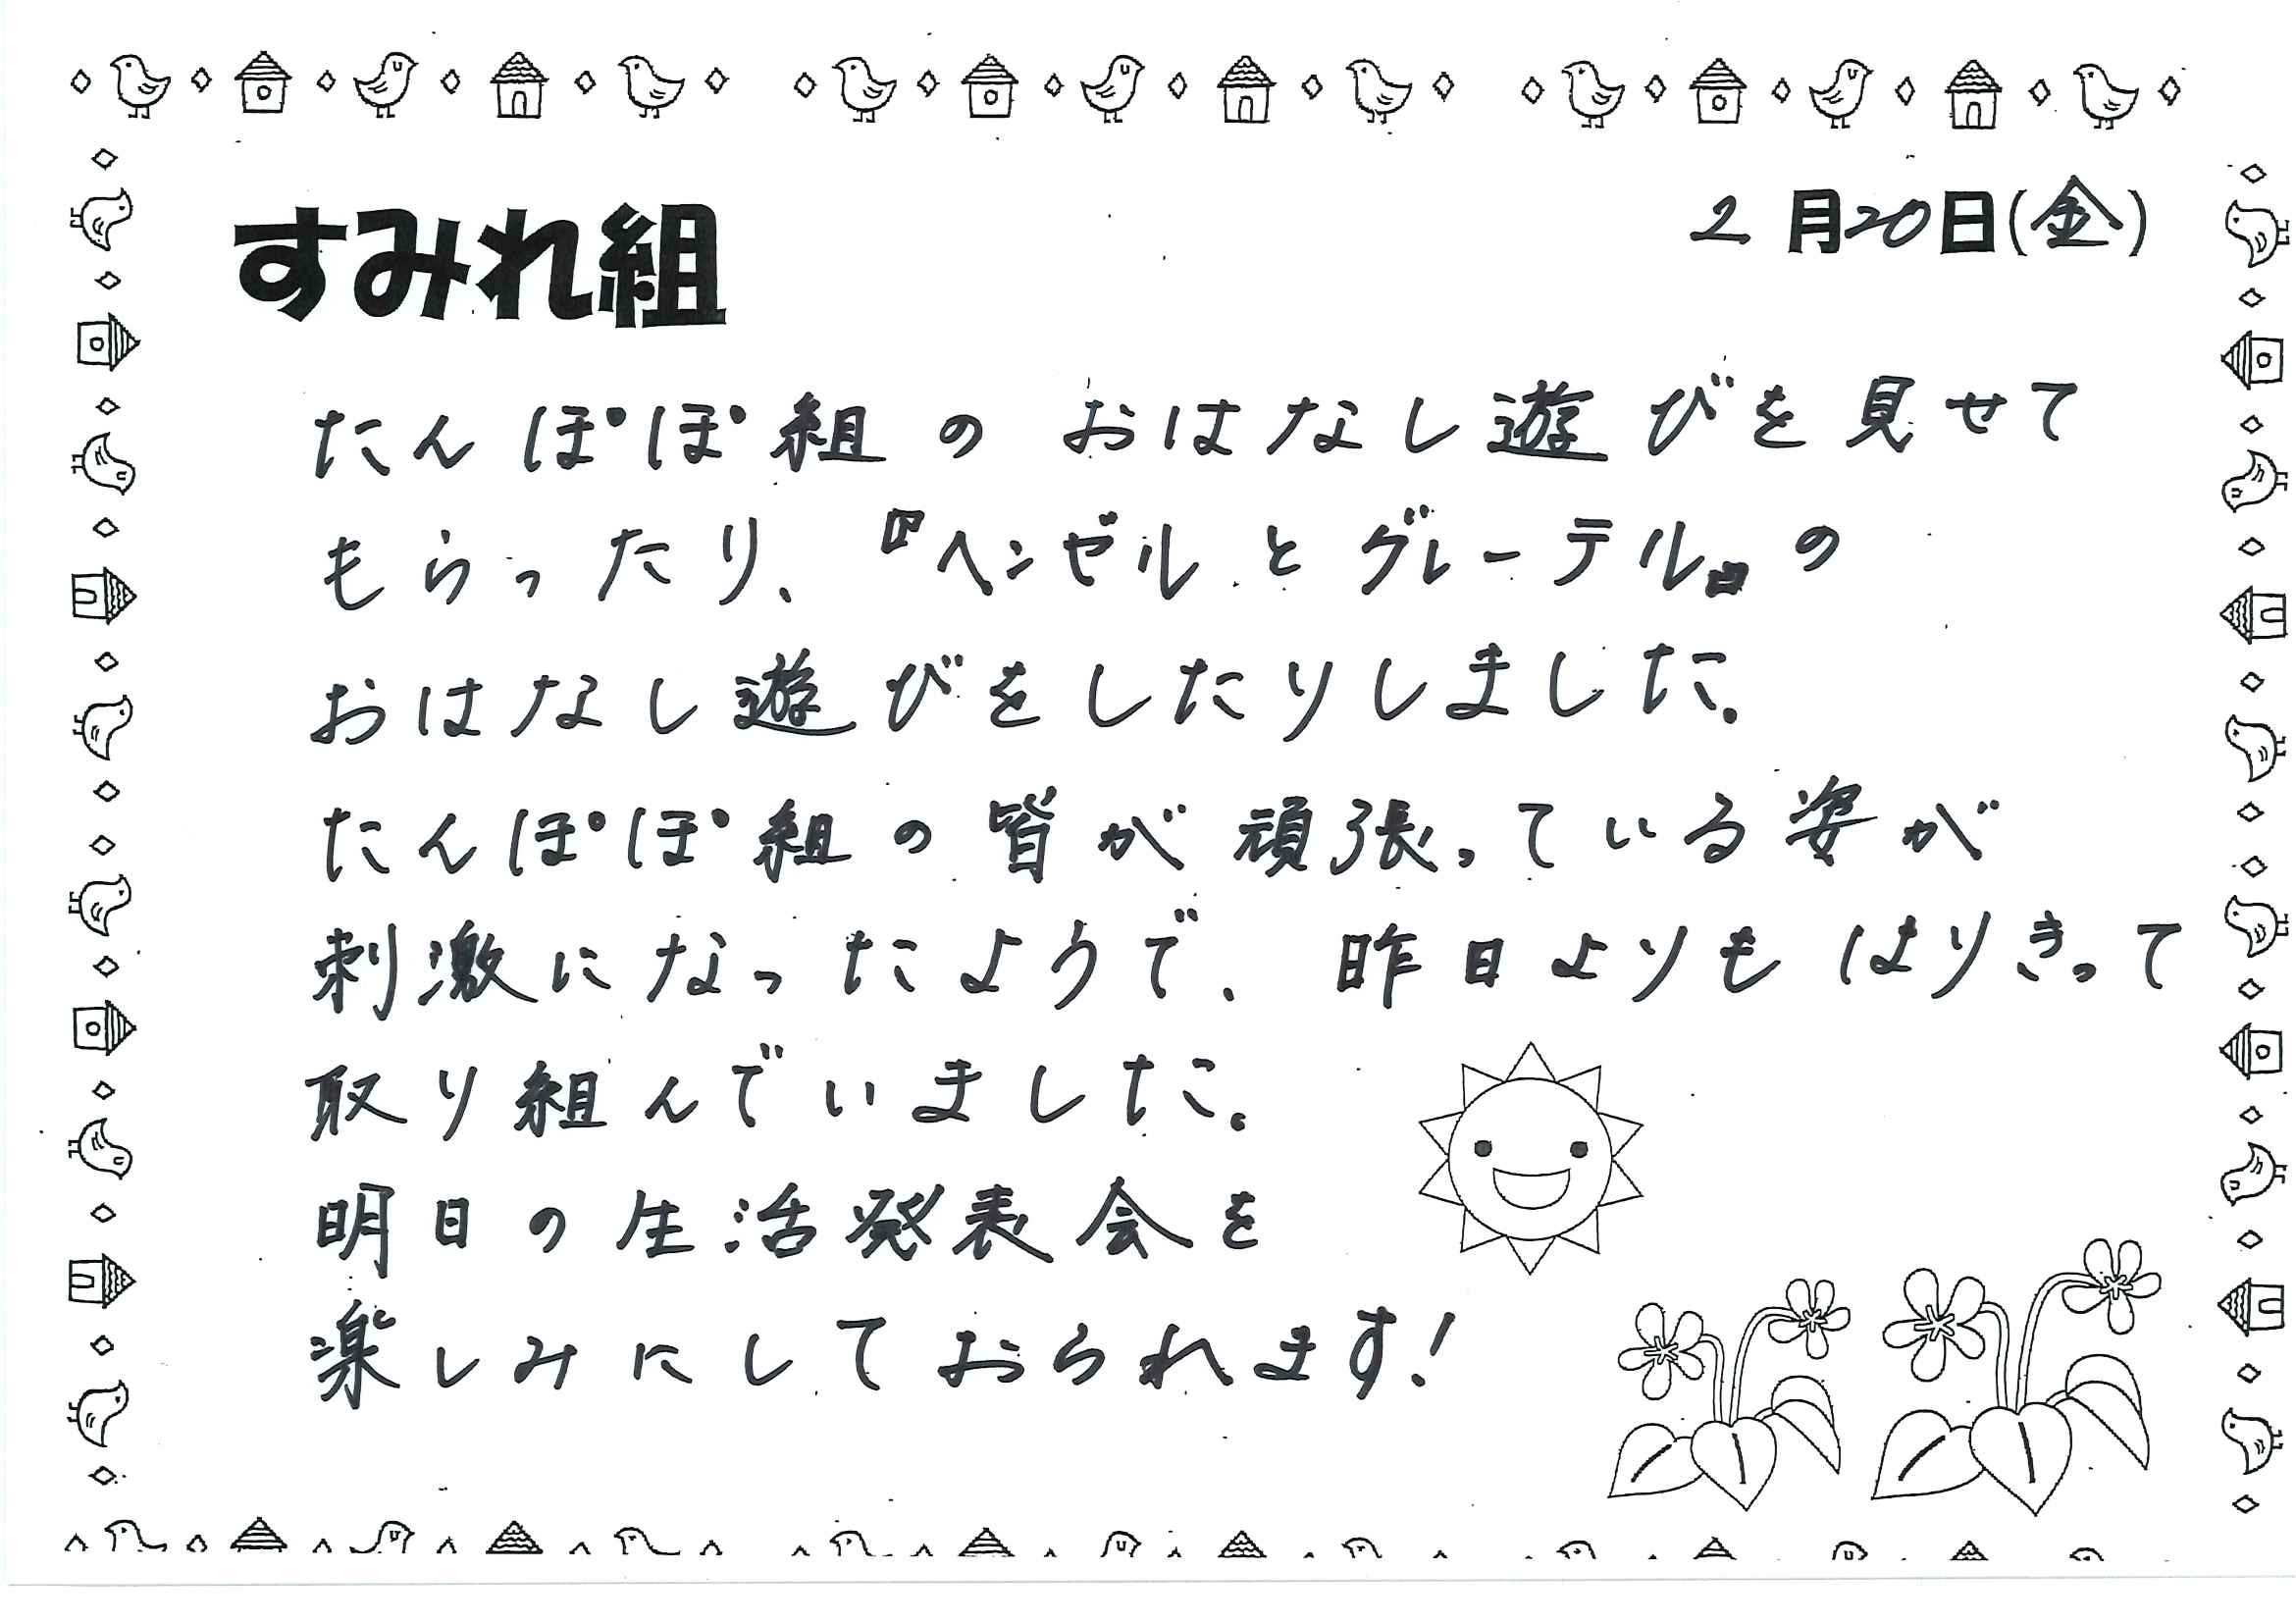 すみれ組
2月20日(金)
たんぽぽ組のおはなし遊びを見せて
もらったり、『ヘンゼルとグレーテル』の
おはなし遊びをしたりしました。
たんぽぽ組の皆が頑張っている姿が
刺激になったようで、昨日よりもはりきって
取り組んでいました。
明日の生活発表会を
楽しみにしておられます!